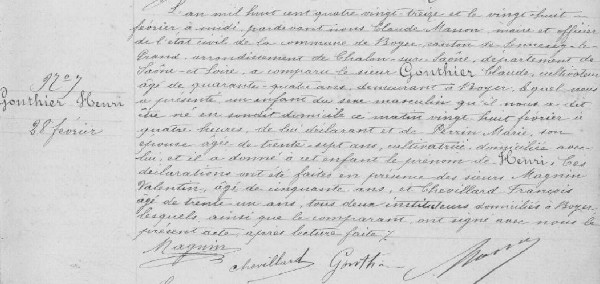 N° 7
Gonthier Henri
28 février
L'an mil huit cent quatre vingt treize et le vingt huit
février à midi, pardevant nous Claude Masson, maire et officier
de l'état civil de la commune de Boyer, canton de Sennecey-le-
Grand, arrondissement de Chalon-sur-Saône, département de
Saône-et-Loire, a comparu le sieur Gonthier Claude, cultivateur
âgé de quarante-quatre ans, demeurant à Boyer, lequel nous
a présenté un enfant du sexe masculin qu'il nous a dit
être né en sondit domicile ce matin vingt huit février à
quatre heures, de lui déclarant et de Perrin Marie, son
épouse âgée de trente-sept ans, cultivatrice domiciliée avec
lui, et il a donné à cet enfant le prénom de Henri; Ces
déclarations ont été faites en présence des sieurs Magnin
Valentin, âgé de cinquante ans, et Chevillard François
âgé de trente-un ans, tous deux instituteurs domiciliés à Boyer
lesquels, ainsi que le comparant, ont signé avec nous le
présent acte, après lecture faite /
Magnin Chevillard Gonthier